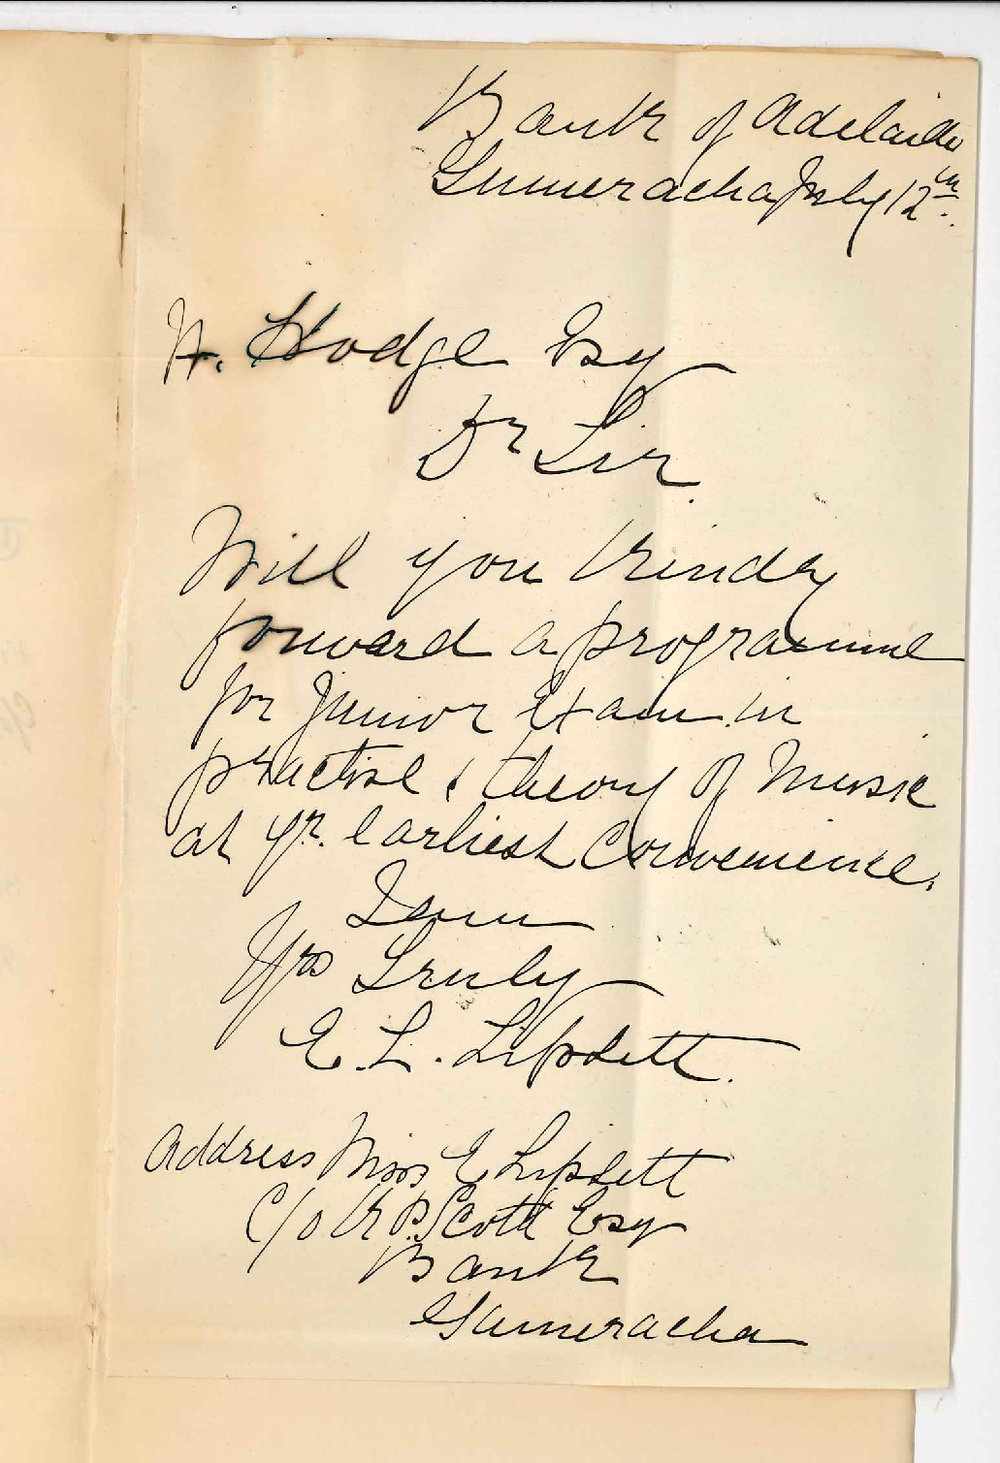 Bank of Adelaide
Gumeracha July 12th.
Hodge Esq
Dr Sir
Will you kindly
forward a programme
for Junior Exam in
practise & theory of Music
at yr. earliest Convenience.
I am
Yrs Truly
E. L. Lipsett.
Address Miss E Lipsett
C/o K P. Scott Esq
Bank
Gumeracha